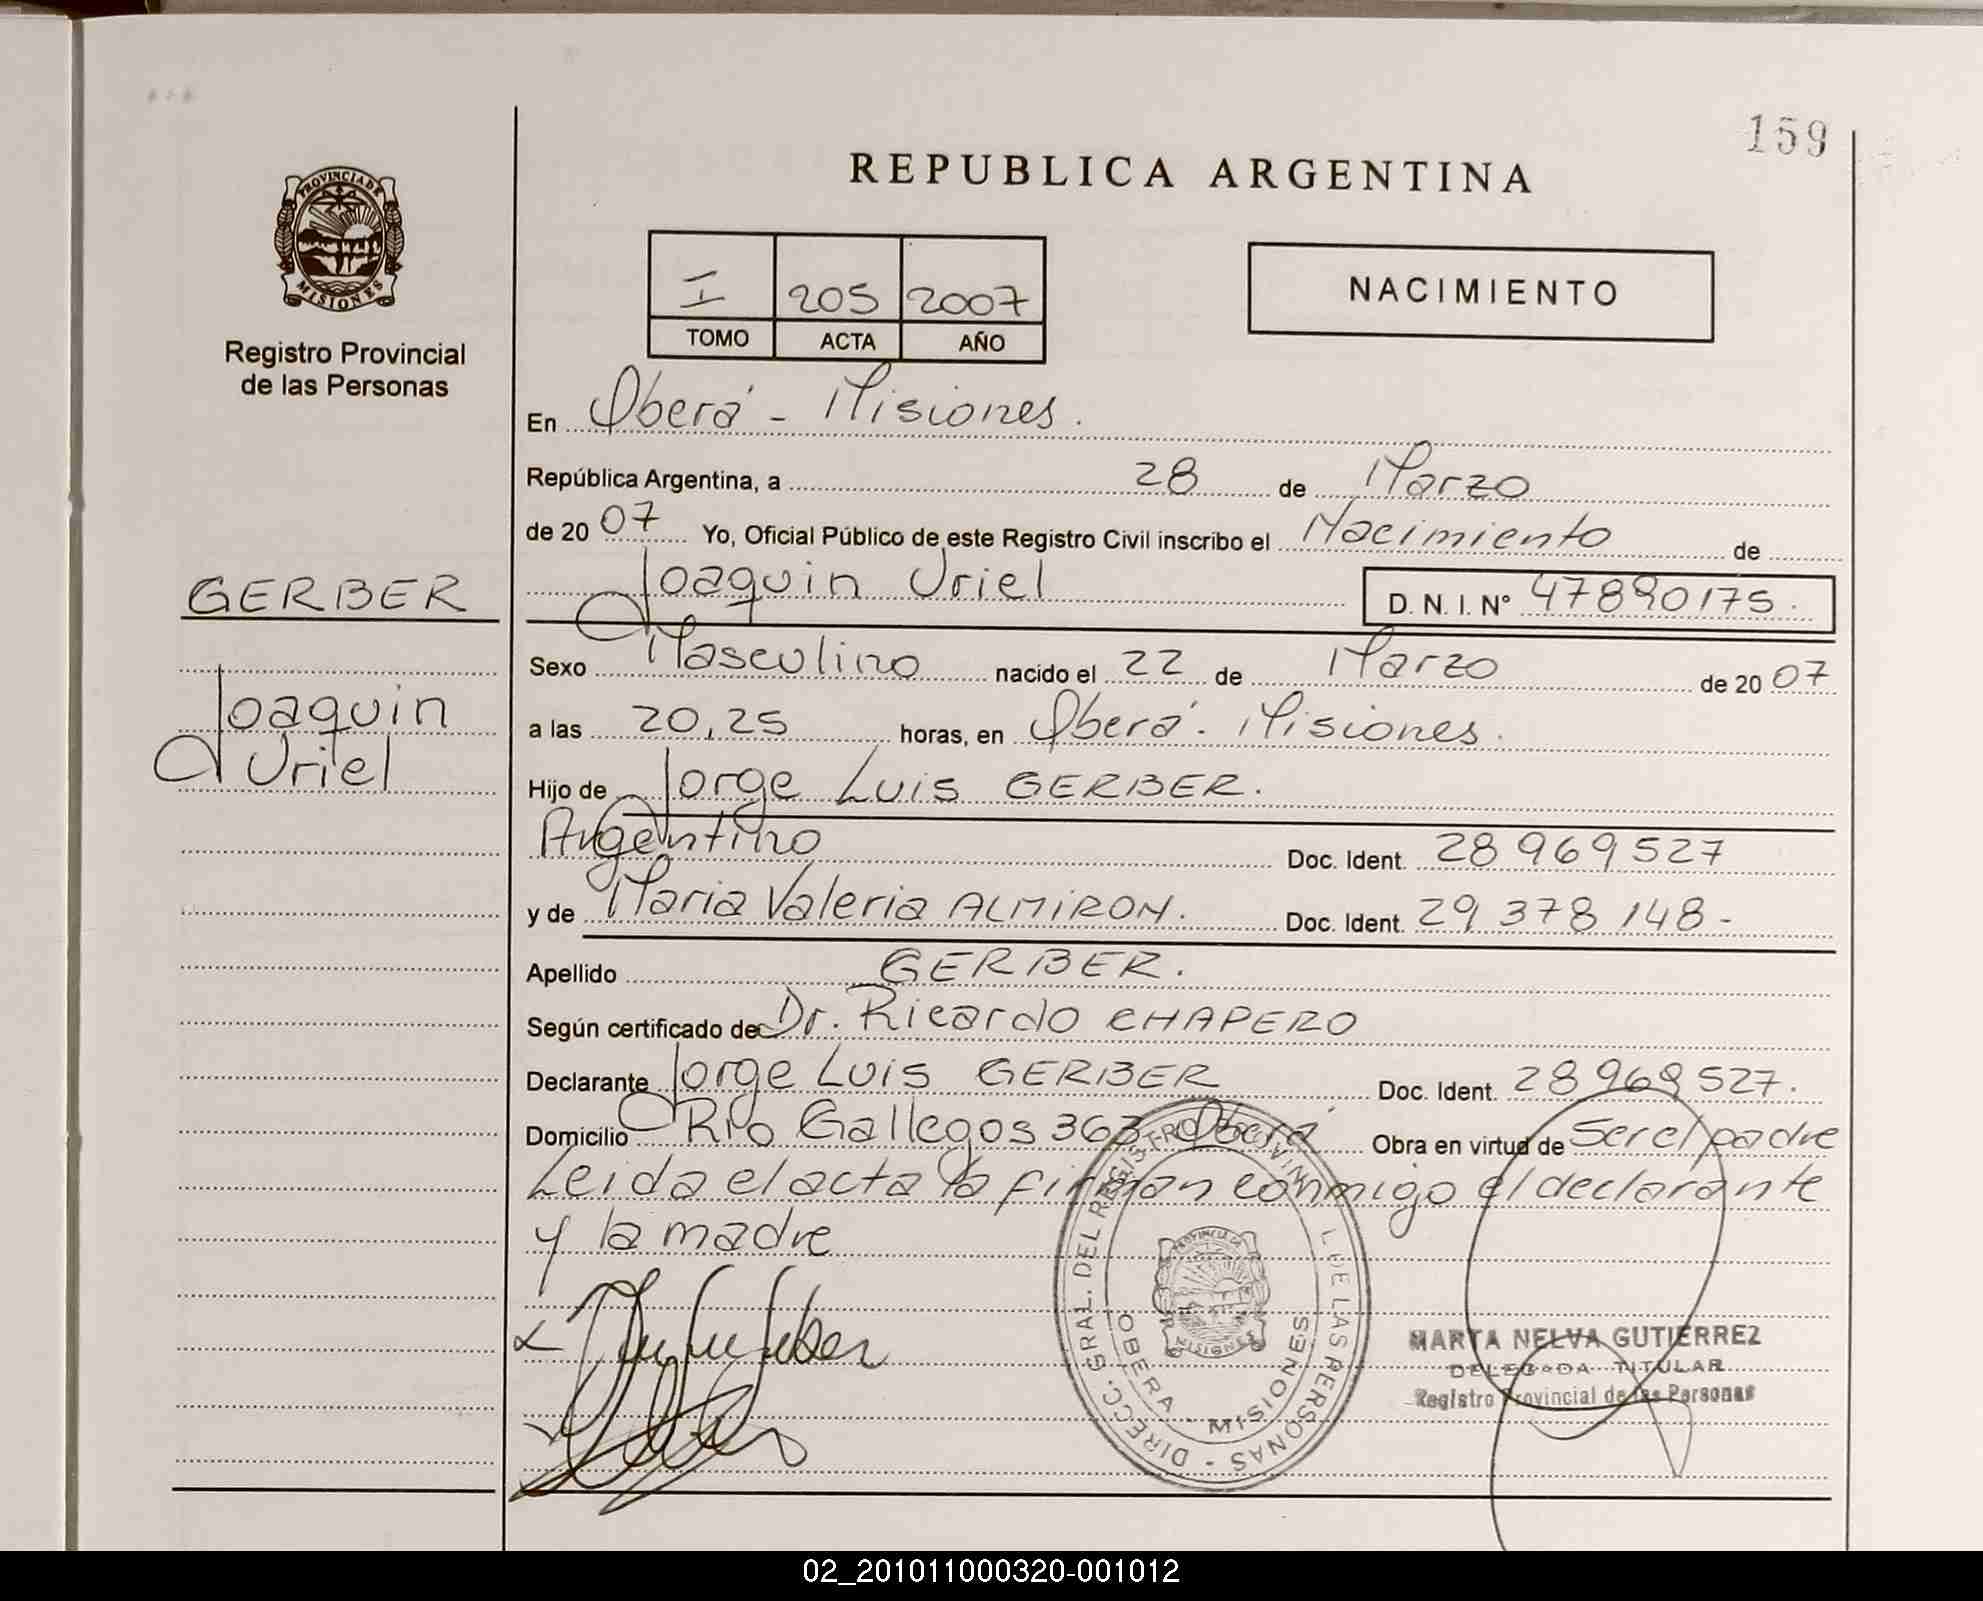 159
REPUBLICA ARGENTINA
PROVINCIA DE
MISIONES
Registro Provincial
de las Personas
I 205 2007
TOMO ACTA AÑO
NACIMIENTO
En Oberá - Misiones.
República Argentina, a 28 de Marzo
de 2007 Yo, Oficial Público de este Registro Civil inscribo el Nacimiento de
GERBER
Joaquin Uriel D. N. I. Nº 47890175.
Sexo Masculino nacido el 22 de Marzo de 2007
Joaquin
Uriel
a las 20,25 horas, en Oberá - Misiones.
Hijo de Jorge Luis GERBER.
Argentino Doc. Ident. 28969527
y de Maria Valeria ALMIRON. Doc. Ident. 29378148-
Apellido GERBER.
Según certificado de Dr. Ricardo CHAPERO
Declarante Jorge Luis GERBER Doc. Ident. 28969527.
Domicilio Rio Gallegos 363 Oberá Obra en virtud de Ser el padre
Leida el acta la firman conmigo el declarante
y la madre
DIRECC. GRAL. DEL REGISTRO PROVINCIAL DE LAS PERSONAS -
OBERA - MISIONES
PROVINCIA DE
MISIONES
MARTA NELVA GUTIERREZ
DELEGADA TITULAR
Registro Provincial de las Personas
02_201011000320-001012